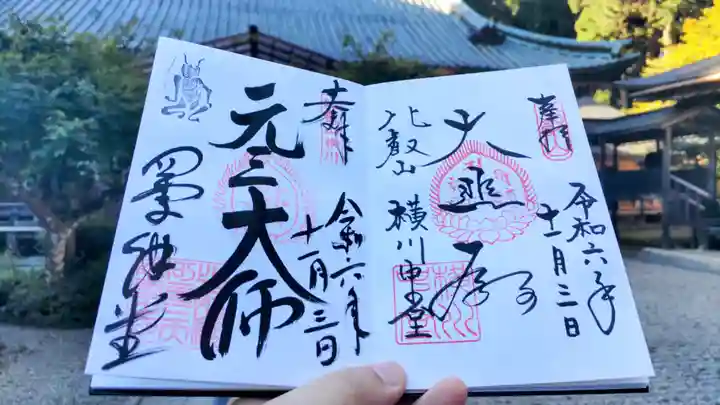 奉拝
令和六年
十一月三日
大悲殿
比叡山 横川中堂
奉拝
令和六年
十一月三日
元三大師
四季講堂